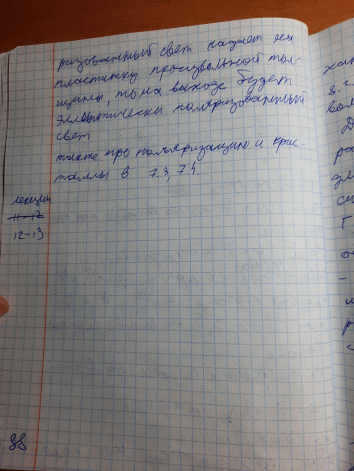 ризованный свет падает на
пластинку произвольной тол-
щины, то на выходе будет
эллиптически поляризованный
свет
также про поляризацию и крис-
таллы в 7.3, 7.4.
лекции
11-12
12-13
88